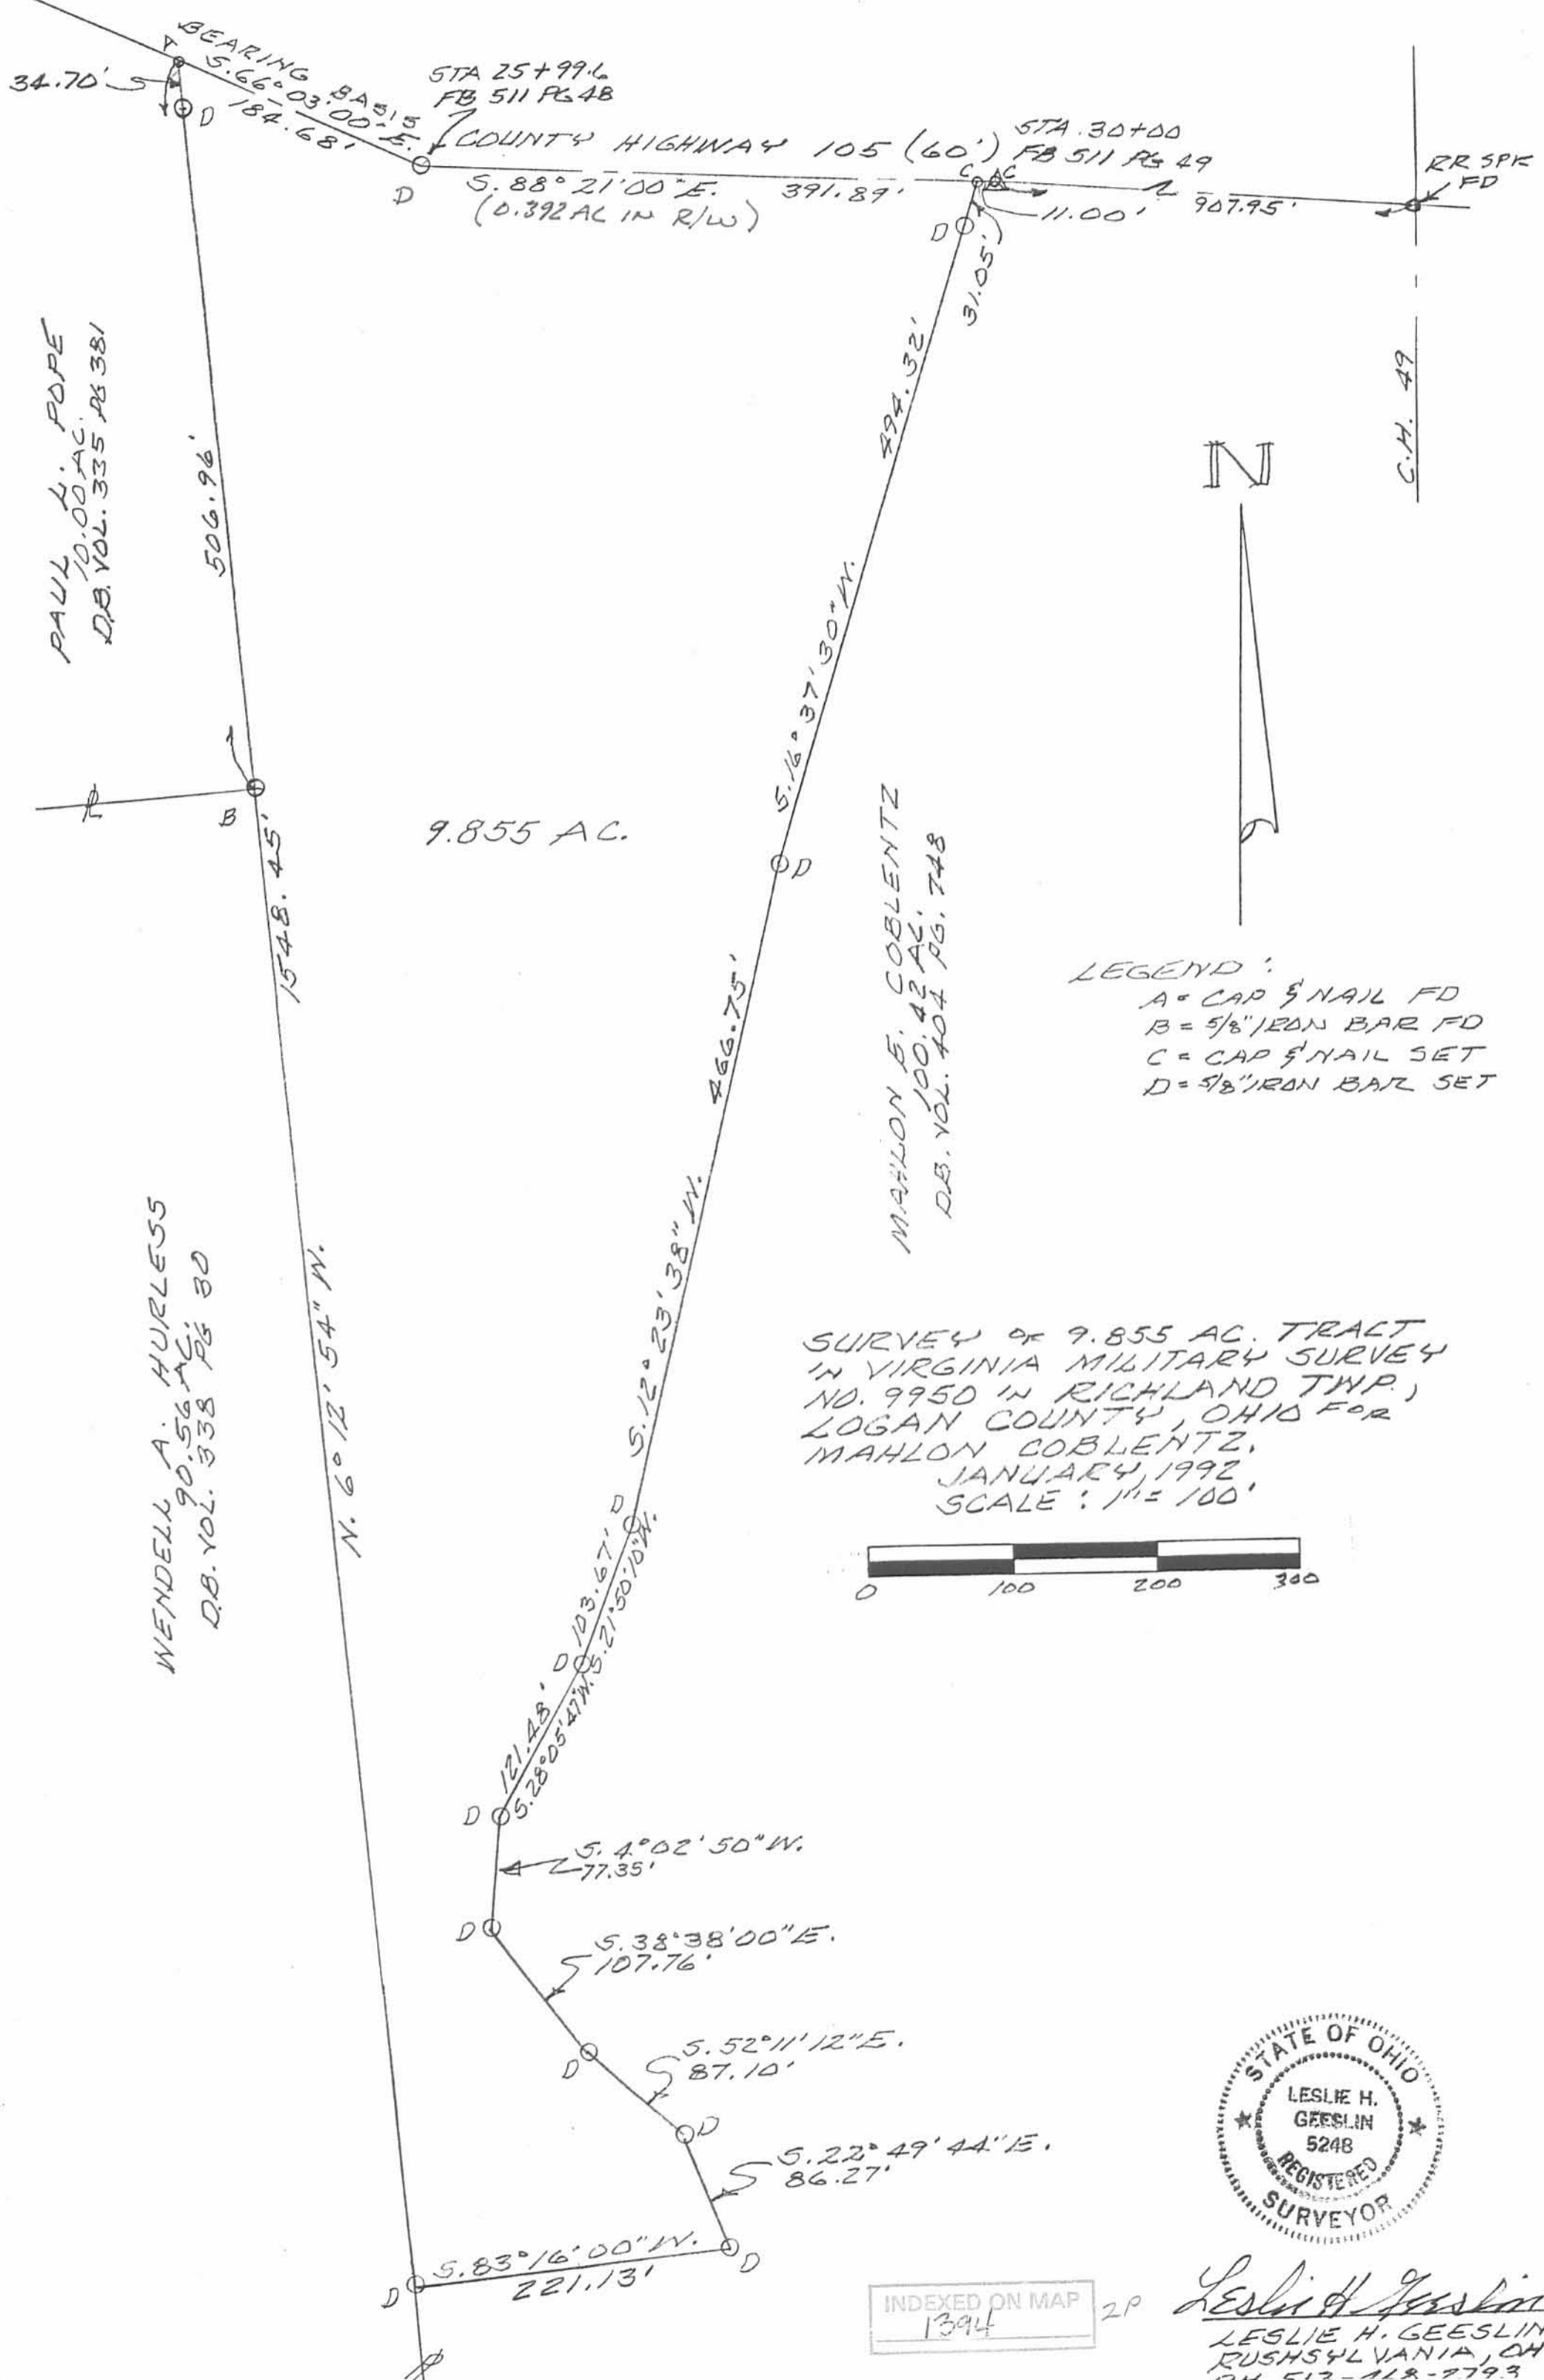 BEARING BASIS
S.66°03'00"E.
184.68'
34.70'
A
D
STA 25+99.6
FB 511 PG 48
COUNTY HIGHWAY 105 (60')
STA. 30+00
FB 511 PG 49
RR SPK
FD
D
S. 88° 21'00"E. 391.89'
(0.392 AC IN R/W)
C
C
11.00'
907.95'
D
31.05'
C.H. 49
PAUL L. POPE
10.00 AC.
D.B. VOL. 335 PG 381
506.96'
494.32'
S.16°37'30"W.
N
B
9.855 AC.
D
1548.45'
MAHLON E. COBLENTZ
100.42 AC.
D.B. VOL. 404 PG. 748
466.75'
LEGEND:
A = CAP & NAIL FD
B = 5/8" IRON BAR FD
C = CAP & NAIL SET
D = 5/8" IRON BAR SET
WENDELL A. HURLESS
90.56 AC.
D.B. VOL. 338 PG 30
N. 6° 12' 54" W.
S. 12° 23' 38" W.
SURVEY OF 9.855 AC. TRACT
IN VIRGINIA MILITARY SURVEY
NO. 9950 IN RICHLAND TWP.,
LOGAN COUNTY, OHIO FOR
MAHLON COBLENTZ.
JANUARY, 1992
SCALE: 1"= 100'
0 100 200 300
D
103.67'
S.21°50'10"W.
D
121.48'
S.28°05'47"W.
D
S. 4°02'50"W.
77.35'
D
S.38°38'00"E.
107.76'
D
S.52°11'12"E.
87.10'
D
S.22°49'44"E.
86.27'
D
S.83°16'00"W.
221.13'
D
STATE OF OHIO
LESLIE H.
GEESLIN
5248
REGISTERED
SURVEYOR
INDEXED ON MAP
1394
2P
Leslie H Geeslin
LESLIE H. GEESLIN
RUSHSYLVANIA, OH
PH 513-468-2793